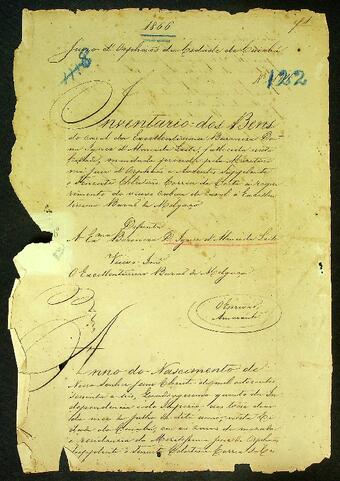 1866
Juizo d'Orphãos da Cidade de Cuiabá
1118
Nº 1252
Inventario dos Bens
do casal da Excellentissima Baroneza Do-
na Ignez d'Almeida Leite, fallecida nesta
Cidade, mandado proceder pelo Merítissi-
mo Juiz d'Orphãos e Ausentes Suppelente
o Tenente Celestino Correa da Costa a reque-
rimento do viuvo cabeça de casal o Excellen-
tissimo Barão de Melgaço
Defunta
A Exma Baroneza D. Ignez d'Almeida Leite
Viuvo Inve
O Excellentissimo Barão de Melgaço
O Escrivão
Amarante
Anno do Nascimento de
Nosso Senhor Jesus Christo de mil oito centos
sessenta e seis, quadragesimo quinto da In-
dependencia e do Imperio, aos
mez de Julho do dito anno, nesta Ci-
dade do Cuiabá, em as casas de morada
e residencia do Juiz d'Orphãos
Suppelente o Tenente Celestino Correa da Cos-